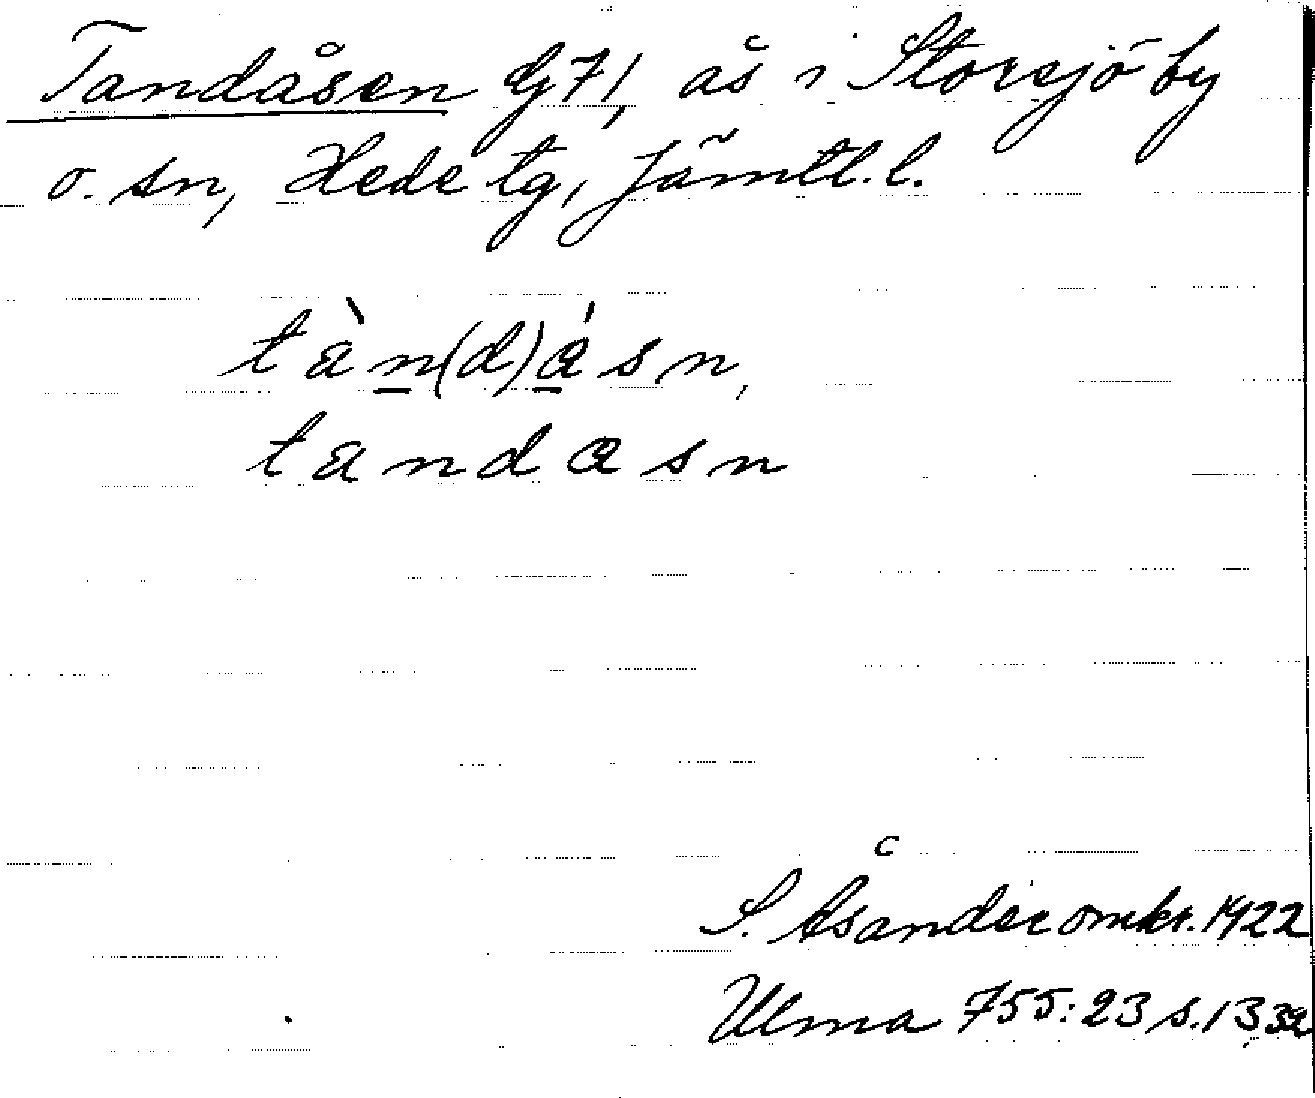 Tandåsen Gj 71, ås i Storsjö by
o. sn, Hede tg, Jämtl. l.
tàn(d)ásn,
tandasn
S. Åsander omkr. 1922
Ulma 755:23 s. 1339